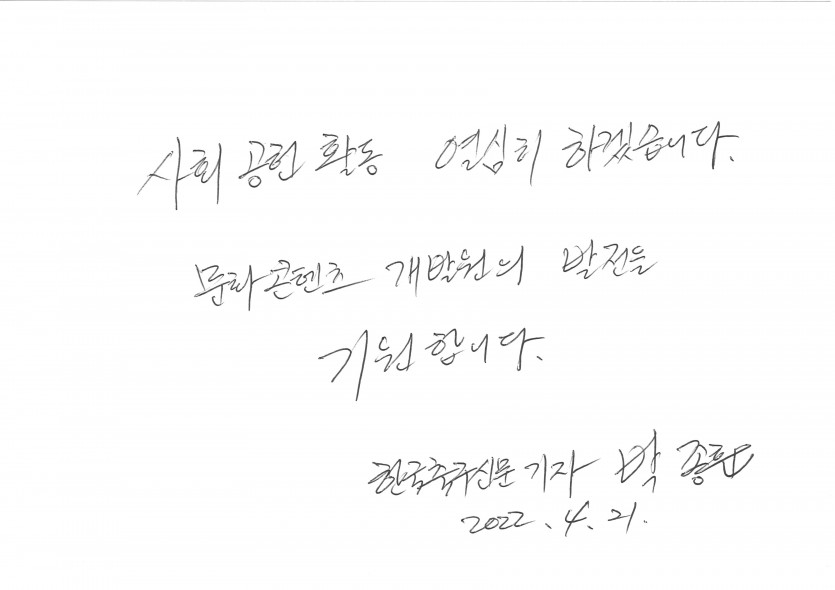 사회 공헌 활동 열심히 하겠습니다.
문화콘텐츠 개발원의 발전을
기원합니다.
한국축구신문 기자 박
2022. 4. 21.